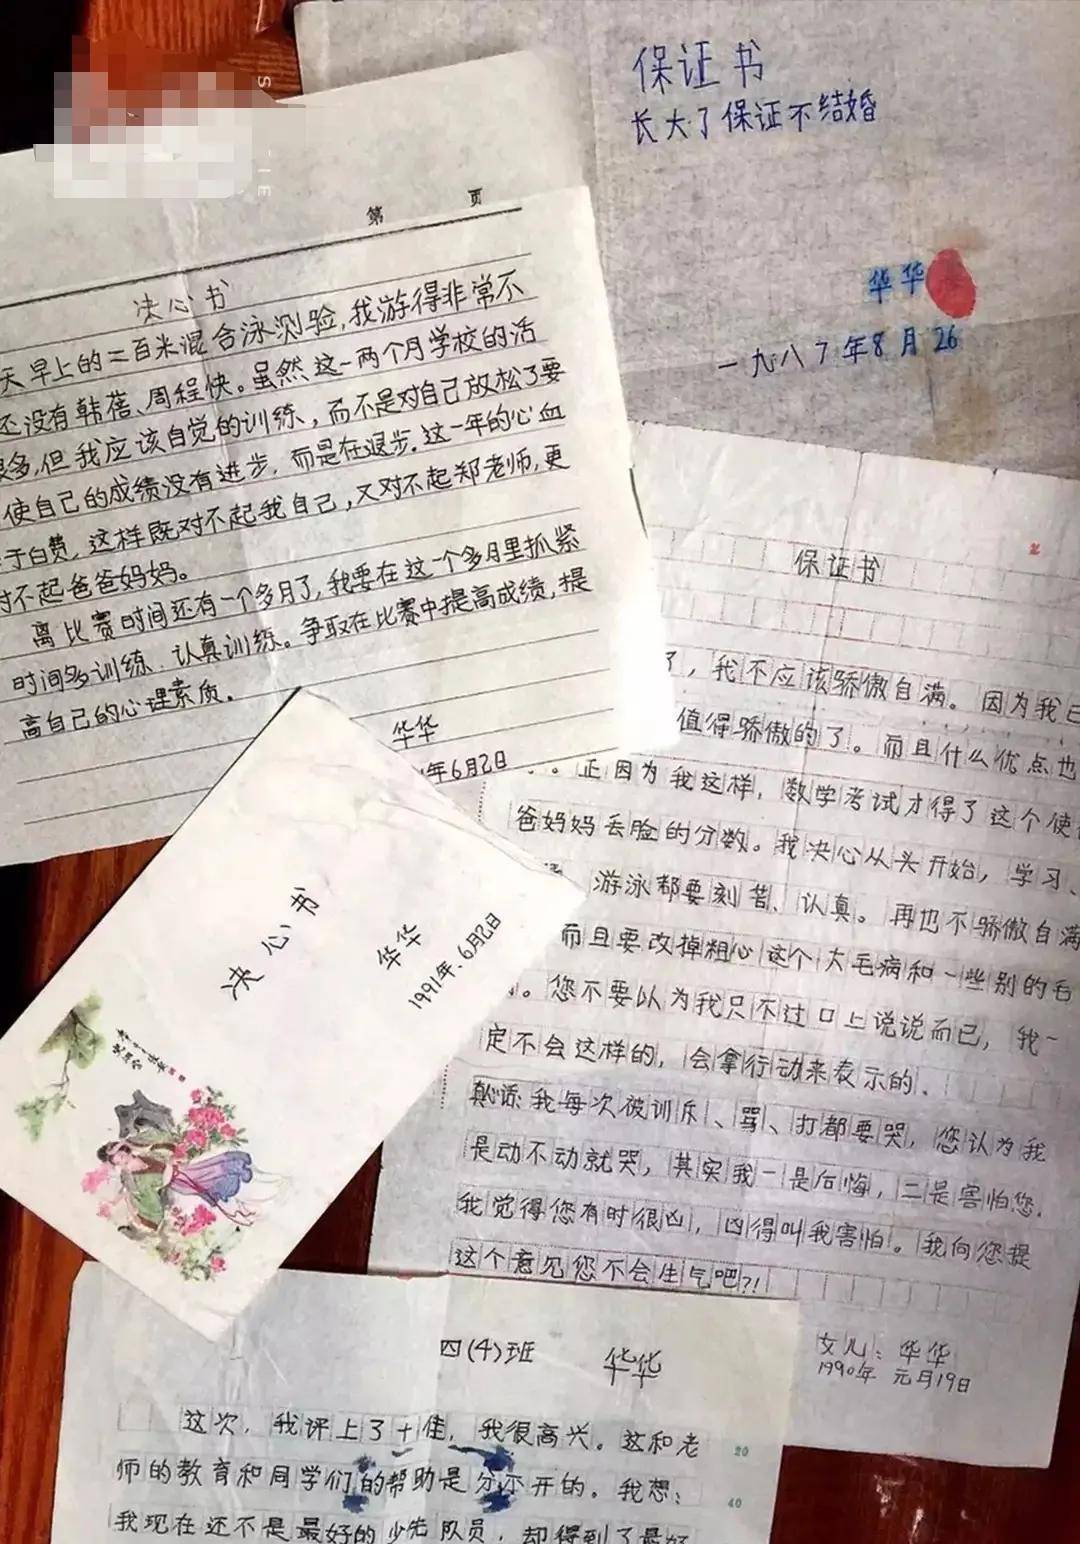 保证书
长大了保证不结婚
华华
一九八7年8月26
第 页
决心书
天早上的二百米混合泳测验,我游得非常不
还没有韩蓓、周程快。虽然这一两个月学校的活
很多,但我应该自觉的训练,而不是对自己放松了要
使自己的成绩没有进步,而是在退步.这一年的心血
于白费,这样既对不起我自己,又对不起郑老师,更
对不起爸爸妈妈。
离比赛时间还有一个多月了,我要在这一个多月里抓紧
时间多训练、认真训练。争取在比赛中提高成绩,提
高自己的心理素质.
华华
年6月2日
保证书
了,我不应该骄傲自满。因为我已
值得骄傲的了。而且什么优点也
。正因为我这样,数学考试才得了这个使
爸妈妈丢脸的分数。我决心从头开始,学习、
游泳都要刻苦、认真。再也不骄傲自满
而且要改掉粗心这个大毛病和一些别的毛
。您不要以为我只不过口上说说而已,我一
定不会这样的,会拿行动来表示的.
真心话我每次被训斥、骂、打都要哭,您认为我
是动不动就哭,其实我一是后悔,二是害怕您.
我觉得您有时很凶,凶得叫我害怕。我向您提
这个意见您不会生气吧?!
女儿:华华
1990年 元月19日
决心书
华华
1991年.6月2日
四(4)班 华华
这次,我评上了十佳,我很高兴。这和老
20
师的教育和同学们的帮助是分不开的。我想:
40
我现在还不是最好的少先队员,却得到了最好